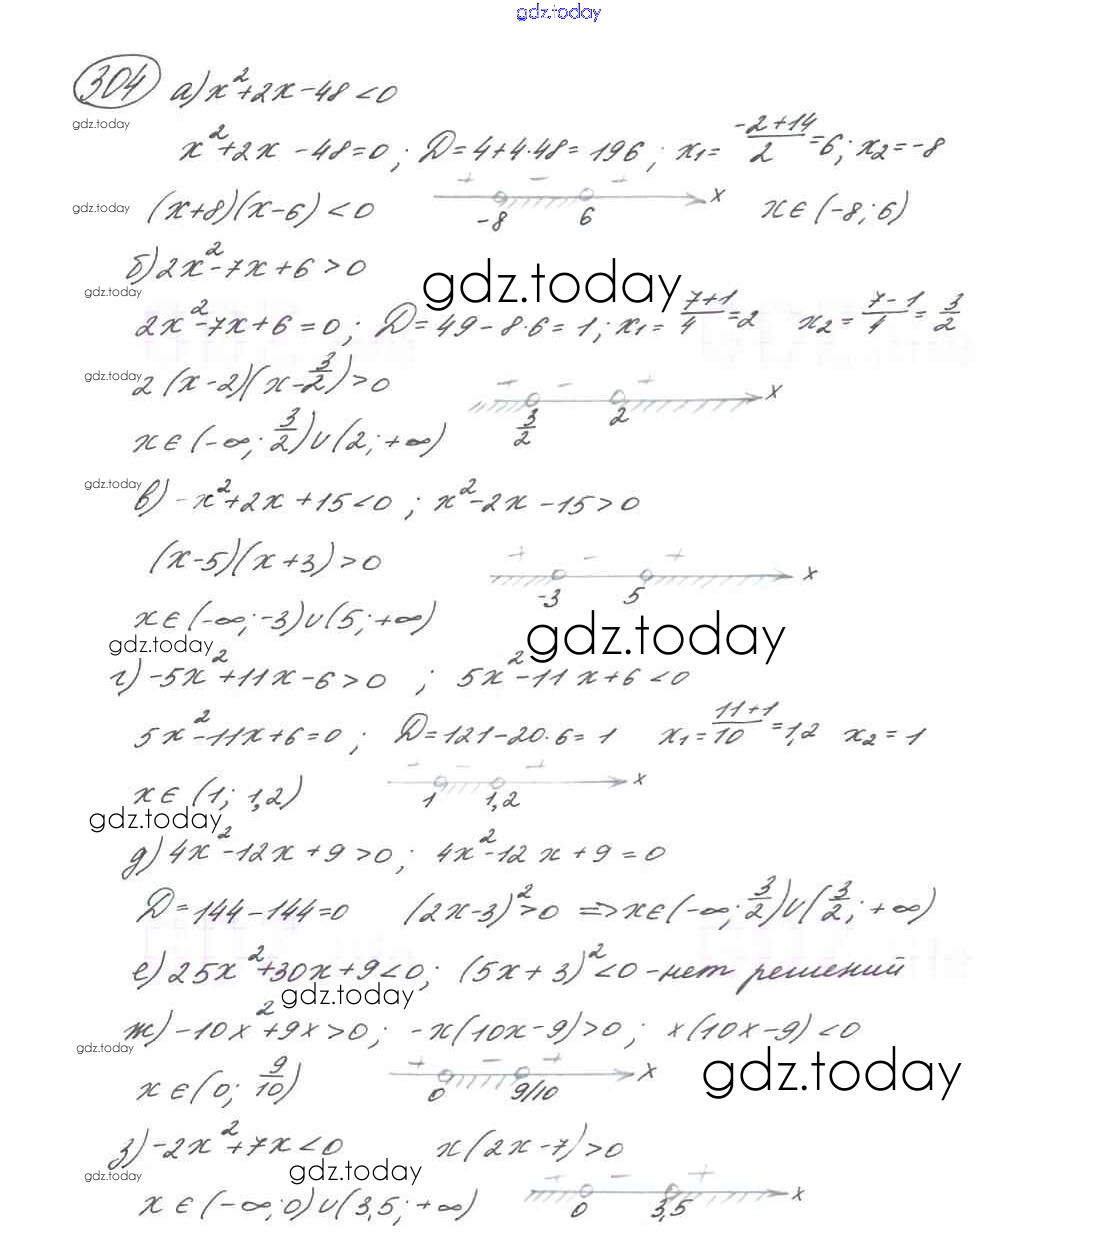 gdz.today
304 а) x²+2x-48<0
gdz.today
x²+2x-48=0; D=4+4·48=196; x₁=(-2+14)/2=6; x₂=-8
+ - +
gdz.today (x+8)(x-6)<0 -8 6 x x∈(-8;6)
б) 2x²-7x+6>0
gdz.today gdz.today
2x²-7x+6=0; D=49-8·6=1; x₁=(7+1)/4=2 x₂=(7-1)/4=3/2
gdz.today 2(x-2)(x-3/2)>0 + - + x
3/2 2
x∈(-∞;3/2)∪(2;+∞)
gdz.today в) -x²+2x+15<0; x²-2x-15>0
(x-5)(x+3)>0 + - + x
-3 5
x∈(-∞;-3)∪(5;+∞)
gdz.today gdz.today
г) -5x²+11x-6>0; 5x²-11x+6<0
5x²-11x+6=0; D=121-20·6=1 x₁=(11+1)/10=1,2 x₂=1
x∈(1; 1,2) - - + x
1 1,2
gdz.today
д) 4x²-12x+9>0; 4x²-12x+9=0
D=144-144=0 (2x-3)²>0 => x∈(-∞;3/2)∪(3/2;+∞)
е) 25x²+30x+9<0; (5x+3)²<0 - нет решений
gdz.today
ж) -10x²+9x>0; -x(10x-9)>0; x(10x-9)<0
gdz.today gdz.today
x∈(0; 9/10) + - + x
0 9/10
з) -2x²+7x<0 x(2x-7)>0
gdz.today gdz.today
x∈(-∞;0)∪(3,5;+∞) + - + x
0 3,5